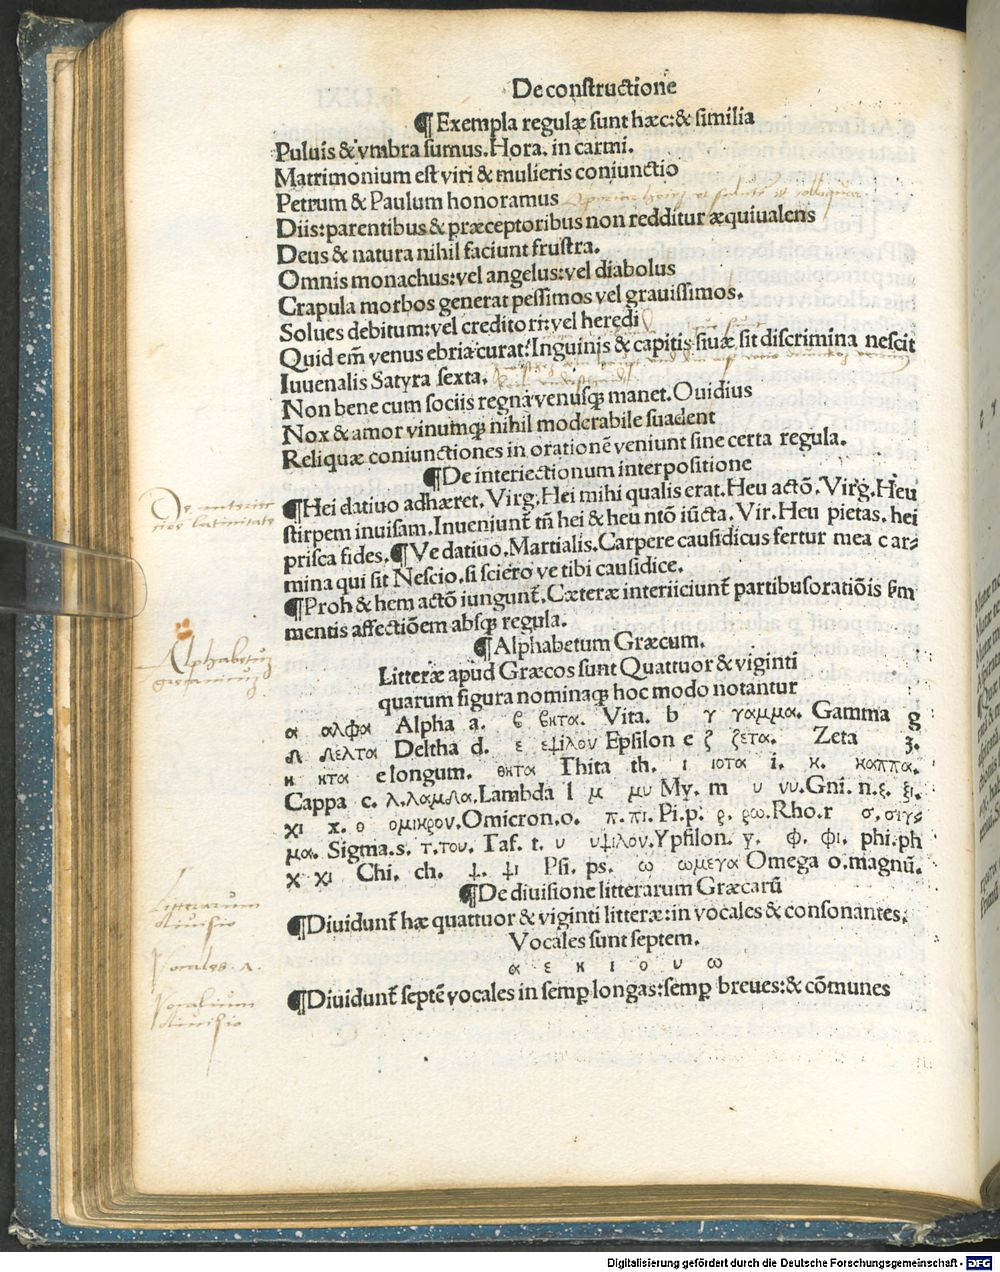 De constructione
¶ Exempla regulæ sunt hæc: & similia
Puluis & vmbra sumus. Hora. in carmi.
Matrimonium est viri & mulieris coniunctio
Petrum & Paulum honoramus
Diis: parentibus & præceptoribus non redditur æquiualens
Deus & natura nihil faciunt frustra.
Omnis monachus: vel angelus: vel diabolus
Crapula morbos generat pessimos vel grauissimos.
Solues debitum: vel creditori: vel heredi
Quid em̄ venus ebria curat: Inguinis & capitis siuæ sit discrimina nescit
Iuuenalis Satyra sexta.
Non bene cum sociis regna venusq; manet. Ouidius
Nox & amor vinumq; nihil moderabile suadent
Reliquæ coniunctiones in orationē veniunt sine certa regula.
¶ De interiectionum interpositione
¶ Hei datiuo adhæret. Virg. Hei mihi qualis erat. Heu actō. Virg. Heu
stirpem inuisam. Inueniunt̄ tn̄ hei & heu ntō iūcta. Vir. Heu pietas, hei
prisca fides. ¶ Ve datiuo. Martialis. Carpere causidicus fertur mea car⸗
mina qui sit Nescio. si sciero ve tibi causidice.
¶ Proh & hem actō iungunt̄. Cæteræ interiiciunt̄ partibus oratiōis s̄m
mentis affectiōem absq; regula.
De interiectio
nes latinitate
¶ Alphabetum Græcum.
Alphabetum
græcanicum
Litteræ apud Græcos sunt Quattuor & viginti
quarum figura nominaq; hoc modo notantur
α αλφα Alpha a. β βητα. Vita. b γ γαμμα. Gamma g
δ δελτα Deltha d. ε εψιλον Epsilon e ζ ζετα. Zeta ȝ.
η ητα e longum. θητα Thita th. ι ιοτα i. κ. καππα.
Cappa c. λ. λαμδα. Lambda l μ μυ My. m ν νυ. Gni. n. ξ. ξι.
χι x. ο ομικρον. Omicron. o. π. πι. Pi. p. ρ. ρω. Rho. r σ. σιγ⸗
μα. Sigma. s. τ. του. Taf. t. υ υψιλον. Ypsilon. y. φ. φι. phi. ph
χ χι Chi. ch. ψ. ψι Psi. ps. ω ωμεγα Omega o. magnū.
¶ De diuisione litterarum Græcarū
Litterarum
diuisio
¶ Diuidunt̄ hæ quattuor & viginti litteræ: in vocales & consonantes.
Vocales sunt septem.
Vocales
α ε η ι ο υ ω
Vocalium
diuisio
¶ Diuidunt̄ septē vocales in semp̱ longas: semp̱ breues: & cōmunes
Digitalisierung gefördert durch die Deutsche Forschungsgemeinschaft - DFG